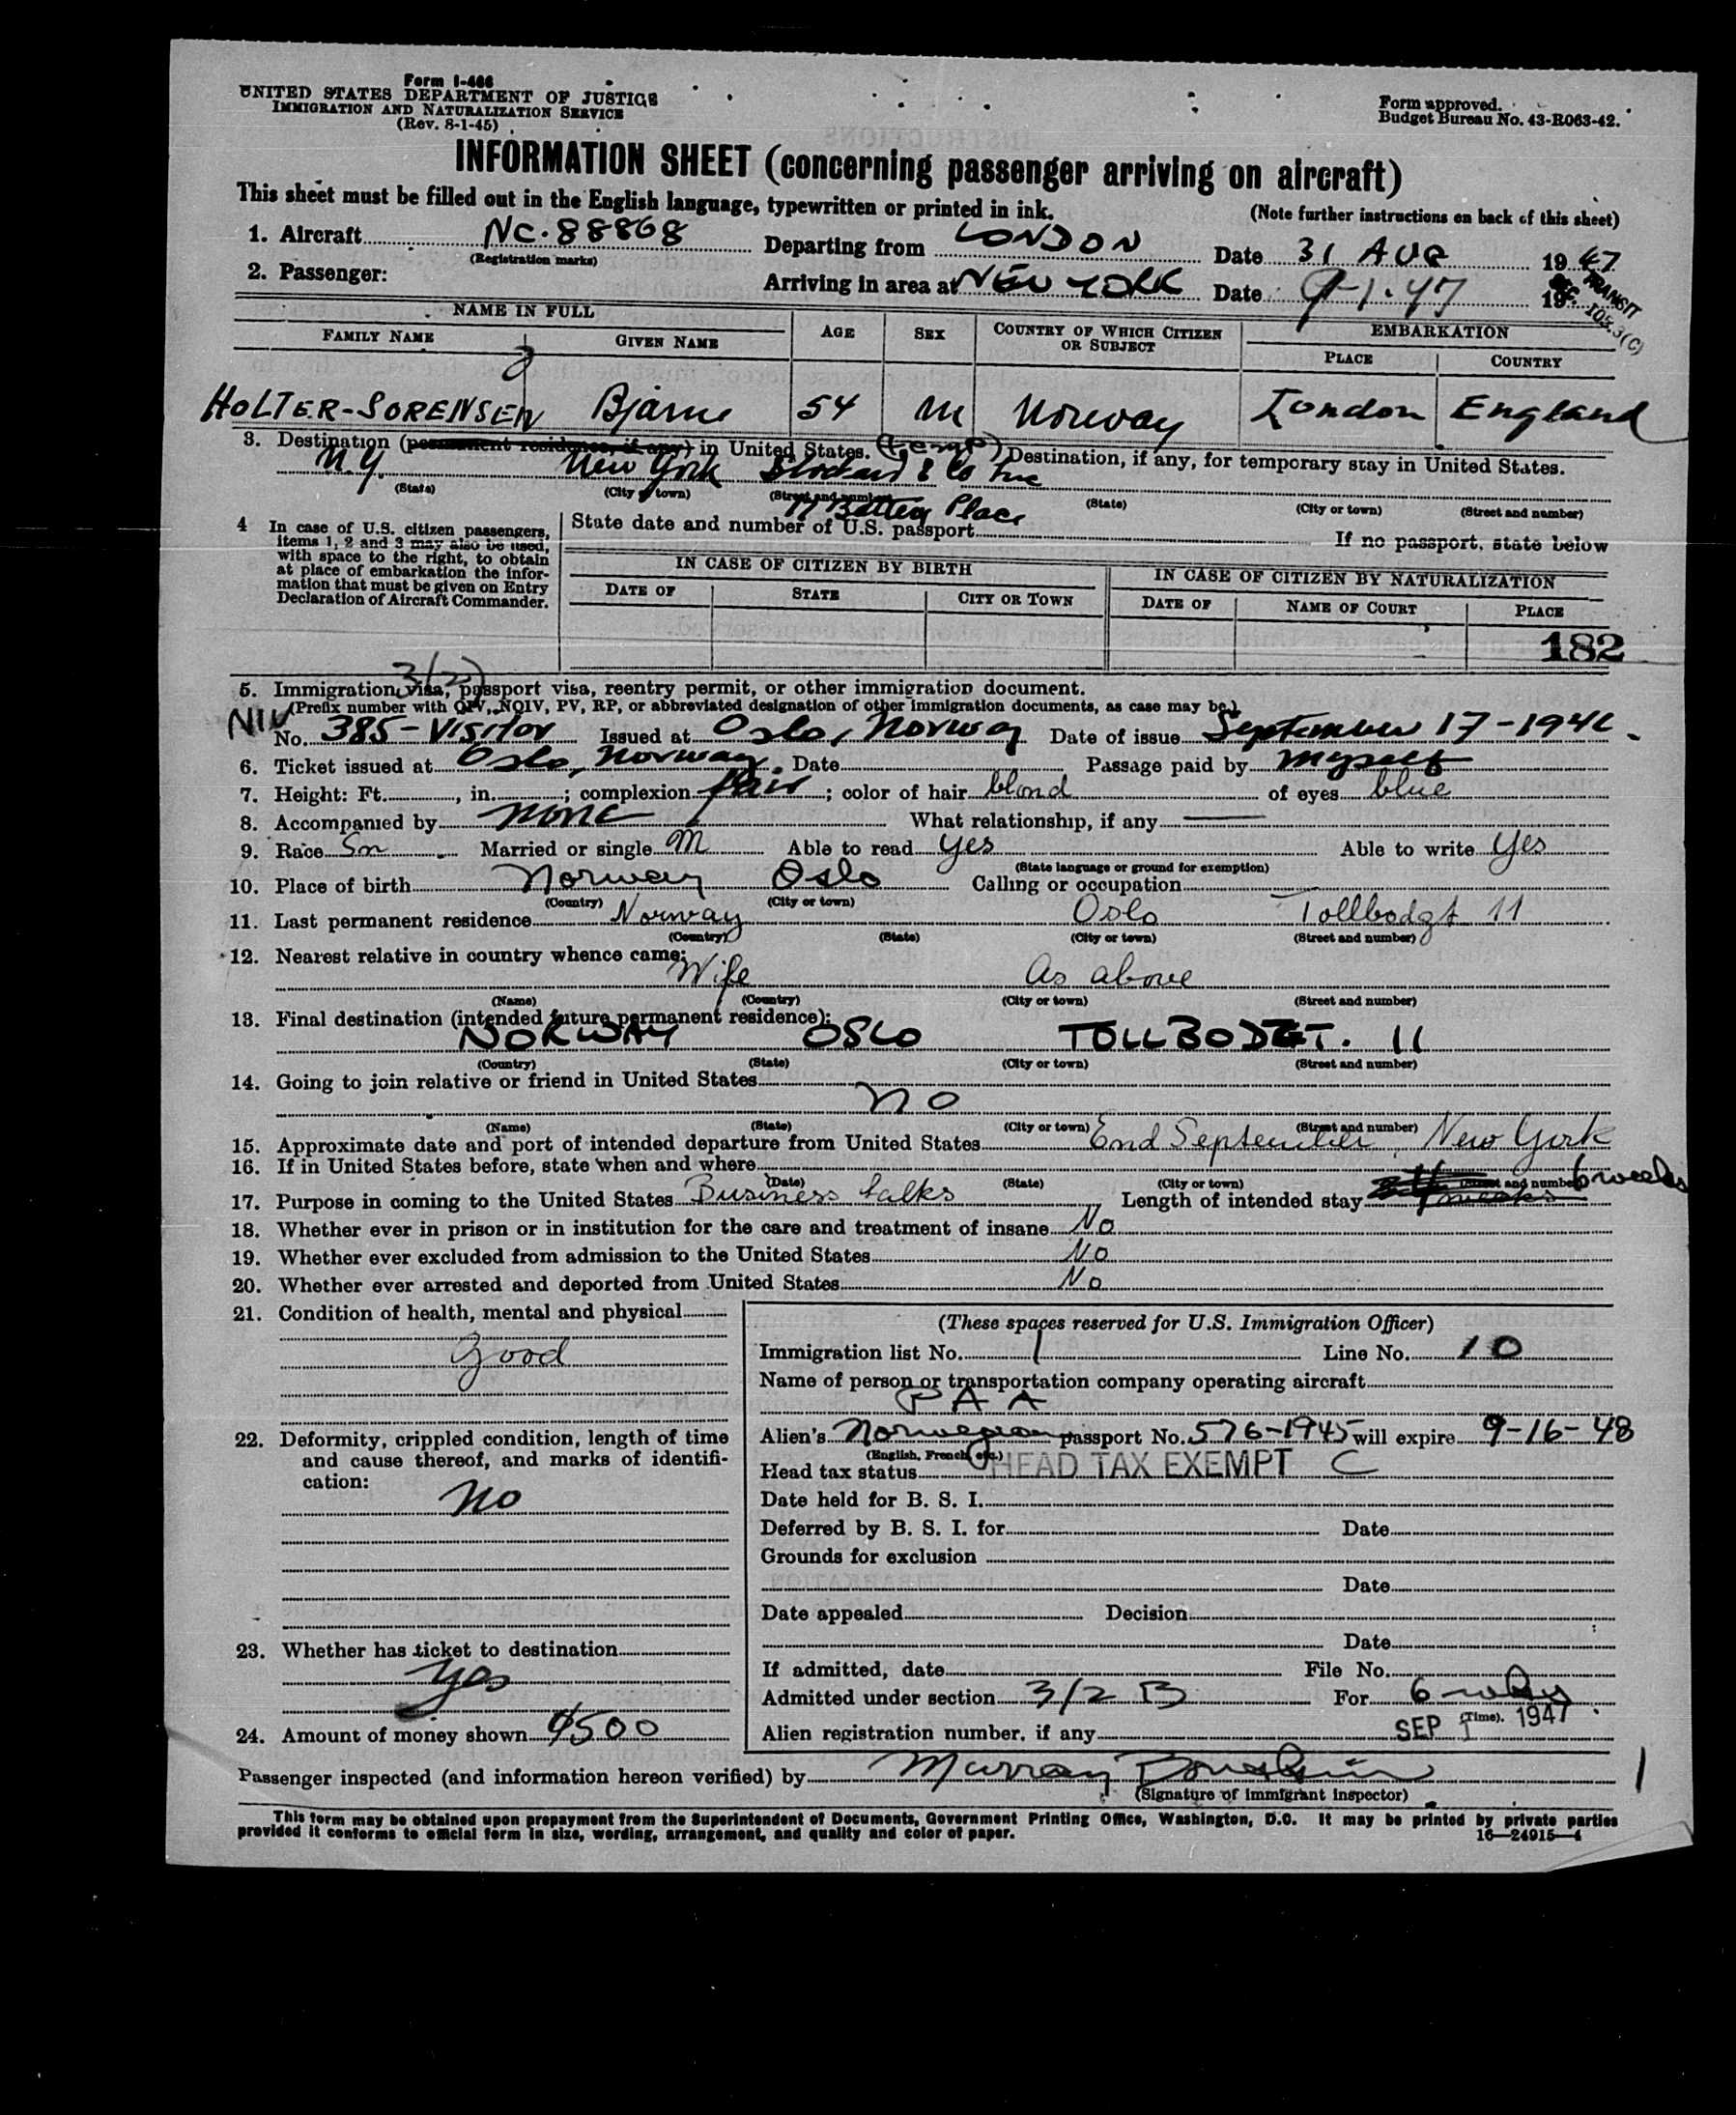 Form I-466
UNITED STATES DEPARTMENT OF JUSTICE
IMMIGRATION AND NATURALIZATION SERVICE
(Rev. 8-1-45)
Form approved.
Budget Bureau No. 43-R063-42.
INFORMATION SHEET (concerning passenger arriving on aircraft)
This sheet must be filled out in the English language, typewritten or printed in ink.
(Note further instructions on back of this sheet)
1. Aircraft NC-88868 Departing from LONDON Date 31 AUG 1947
(Registration marks)
2. Passenger: Arriving in area at NEW YORK Date 9-1-47 19
TRANSIT
SEC. 105.3(C)
NAME IN FULL AGE SEX COUNTRY OF WHICH CITIZEN OR SUBJECT EMBARKATION
FAMILY NAME GIVEN NAME PLACE COUNTRY
HOLTER-SORENSEN Bjarne 54 M Norway London England
3. Destination (permanent residence, if any) in United States. (temp) Destination, if any, for temporary stay in United States.
N.Y. New York & Co Inc
(State) (City or town) (Street and number) (State) (City or town) (Street and number)
17 Battery Place
4 In case of U.S. citizen passengers, items 1, 2 and 3 may also be used, with space to the right, to obtain at place of embarkation the information that must be given on Entry Declaration of Aircraft Commander.
State date and number of U.S. passport If no passport, state below
IN CASE OF CITIZEN BY BIRTH IN CASE OF CITIZEN BY NATURALIZATION
DATE OF STATE CITY OR TOWN DATE OF NAME OF COURT PLACE
182
3(2)
5. Immigration visa, passport visa, reentry permit, or other immigration document.
(Prefix number with QIV, NQIV, PV, RP, or abbreviated designation of other immigration documents, as case may be.)
NIV No. 385-Visitor Issued at Oslo, Norway Date of issue September 17-1946.
6. Ticket issued at Oslo, Norway. Date Passage paid by myself
7. Height: Ft. , in. ; complexion fair ; color of hair blond of eyes blue
8. Accompanied by none What relationship, if any
9. Race Sn Married or single M Able to read yes Able to write yes
(State language or ground for exemption)
10. Place of birth Norway Oslo Calling or occupation
(Country) (City or town)
11. Last permanent residence Norway Oslo Tollbodgt 11
(Country) (State) (City or town) (Street and number)
12. Nearest relative in country whence came:
Wife As above
(Name) (Country) (City or town) (Street and number)
13. Final destination (intended future permanent residence):
NORWAY OSLO TOLLBODGT. 11
(Country) (State) (City or town) (Street and number)
14. Going to join relative or friend in United States
no
(Name) (State) (City or town) (Street and number)
15. Approximate date and port of intended departure from United States End September, New York
16. If in United States before, state when and where
(Date) (State) (City or town) (Street and number)
17. Purpose in coming to the United States Business talks Length of intended stay 6 weeks
18. Whether ever in prison or in institution for the care and treatment of insane No
19. Whether ever excluded from admission to the United States No
20. Whether ever arrested and deported from United States No
21. Condition of health, mental and physical
good
22. Deformity, crippled condition, length of time and cause thereof, and marks of identification:
no
23. Whether has ticket to destination
yes
24. Amount of money shown $500
(These spaces reserved for U.S. Immigration Officer)
Immigration list No. 1 Line No. 10
Name of person or transportation company operating aircraft
P A A
Alien's Norwegian passport No. 576-1945 will expire 9-16-48
(English, French, etc.)
Head tax status HEAD TAX EXEMPT C
Date held for B. S. I.
Deferred by B. S. I. for Date
Grounds for exclusion
Date
Date appealed Decision
Date
If admitted, date File No.
Admitted under section 3/2 B For 6 wks
(Time).
Alien registration number, if any SEP 1 1947
Passenger inspected (and information hereon verified) by Murray
(Signature of immigrant inspector)
1
This form may be obtained upon prepayment from the Superintendent of Documents, Government Printing Office, Washington, D.C. It may be printed by private parties
provided it conforms to official form in size, wording, arrangement, and quality and color of paper.
16—24915-4